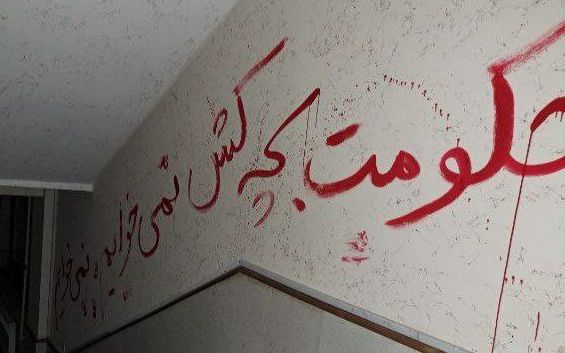 حکومت بچه کش نمی خوایم نمی خوایم